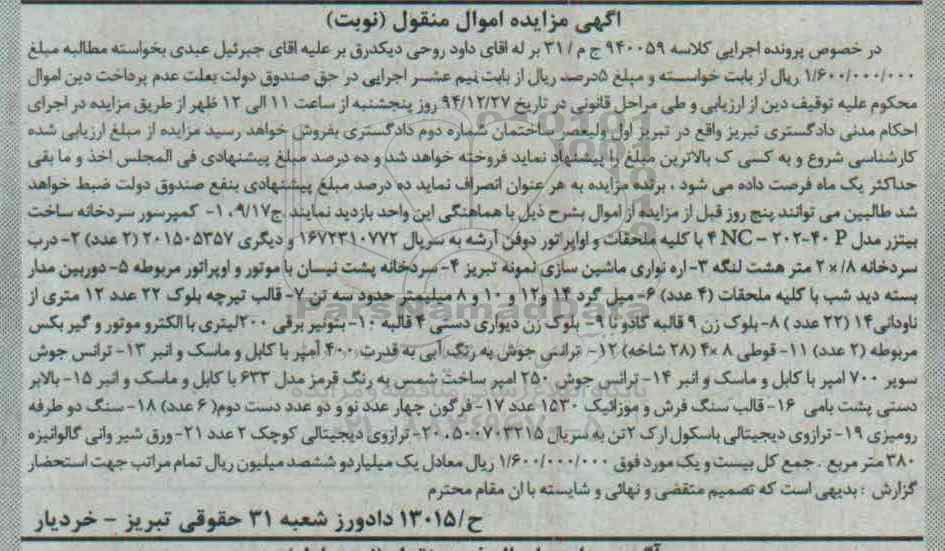 آگهی مزایده اموال منقول (نوبت)
در خصوص پرونده اجرایی کلاسه ۹۴۰۰۵۹ ج م / ۳۱ بر له اقای داود روحی دیکدرق بر علیه اقای جبرئیل عبدی بخواسته مطالبه مبلغ
۱/۶۰۰/۰۰۰/۰۰۰ ریال از بابت خواسته و مبلغ ۵درصد ریال از بابت نیم عشر اجرایی در حق صندوق دولت بعلت عدم پرداخت دین اموال
محکوم علیه توقیف دین از ارزیابی و طی مراحل قانونی در تاریخ ۹۴/۱۲/۲۷ روز پنجشنبه از ساعت ۱۱ الی ۱۲ ظهر از طریق مزایده در اجرای
احکام مدنی دادگستری تبریز واقع در تبریز اول ولیعصر ساختمان شماره دوم دادگستری بفروش خواهد رسید مزایده از مبلغ ارزیابی شده
کارشناسی شروع و به کسی ک بالاترین مبلغ را پیشنهاد نماید فروخته خواهد شد و ده درصد مبلغ پیشنهادی فی المجلس اخذ و ما بقی
حداکثر یک ماه فرصت داده می شود ، برنده مزایده به هر عنوان انصراف نماید ده درصد مبلغ پیشنهادی بنفع صندوق دولت ضبط خواهد
شد طالبین می توانند پنج روز قبل از مزایده از اموال بشرح ذیل با هماهنگی این واحد بازدید نمایند .ج۱۰۹/۱۷- کمپرسور سردخانه ساخت
بیتزر مدل ۴ NC – ۲۰۲-۴۰ P با کلیه ملحقات و اواپراتور دوفن آرشه به سریال ۱۶۷۲۳۱۰۷۷۲ و دیگری ۲۰۱۵۰۵۳۵۷ (۲ عدد) ۲- درب
سردخانه ۲×۱/۸ متر هشت لنگه ۳- اره نواری ماشین سازی نمونه تبریز ۴- سردخانه پشت نیسان با موتور و اوپراتور مربوطه ۵- دوربین مدار
بسته دید شب با کلیه ملحقات (۴ عدد) ۶- میل گرد ۱۴ و۱۲ و ۱۰ و ۸ میلیمتر حدود سه تن ۷- قالب تیرچه بلوک ۲۲ عدد ۱۲ متری از
ناودانی۱۴ (۲۲ عدد ) ۸- بلوک زن ۹ قالبه کادو با ۹- بلوک زن دیواری دستی ۴ قالبه ۱۰- بتونیر برقی ۲۰۰لیتری با الکترو موتور و گیر بکس
مربوطه (۲ عدد) ۱۱- قوطی ۸ ×۴ (۲۸ شاخه) ۱۲- ترانس جوش به رنگ آبی به قدرت ۴۰۰ آمپر با کابل و ماسک و انبر ۱۳- ترانس جوش
سوپر ۷۰۰ امپر با کابل و ماسک و انبر ۱۴- ترانس جوش ۲۵۰ امپر ساخت شمس به رنگ قرمز مدل ۶۳۳ با کابل و ماسک و انبر ۱۵- بالابر
دستی پشت بامی ۱۶- قالب سنگ فرش و موزائیک ۱۵۳۰ عدد ۱۷- فرگون چهار عدد نو و دو عدد دست دوم( ۶ عدد) ۱۸- سنگ دو طرفه
رومیزی ۱۹- ترازوی دیجیتالی باسکول ارک ۲تن به سریال ۵۰۰۷۰۳۲۱۵ .۲۰- ترازوی دیجیتالی کوچک ۲ عدد ۲۱- ورق شیر وانی گالوانیزه
۳۸۰ متر مربع . جمع کل بیست و یک مورد فوق ۱/۶۰۰/۰۰۰/۰۰۰ ریال معادل یک میلیاردو ششصد میلیون ریال تمام مراتب جهت استحضار
گزارش : بدیهی است که تصمیم متقضی و نهائی و شایسته با ان مقام محترم
ح/۱۳۰۱۵ دادورز شعبه ۳۱ حقوقی تبریز – خردیار
ParsNamadData